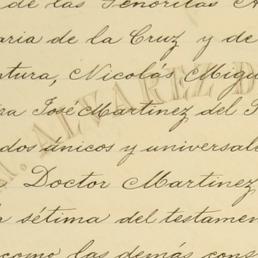 de las Señoritas A
aria de la Cruz y de
ntura, Nicolás Migu
ra José Martinez del
dos únicos y universal
Doctor Martinez
sétima del testamen
como las demás cons